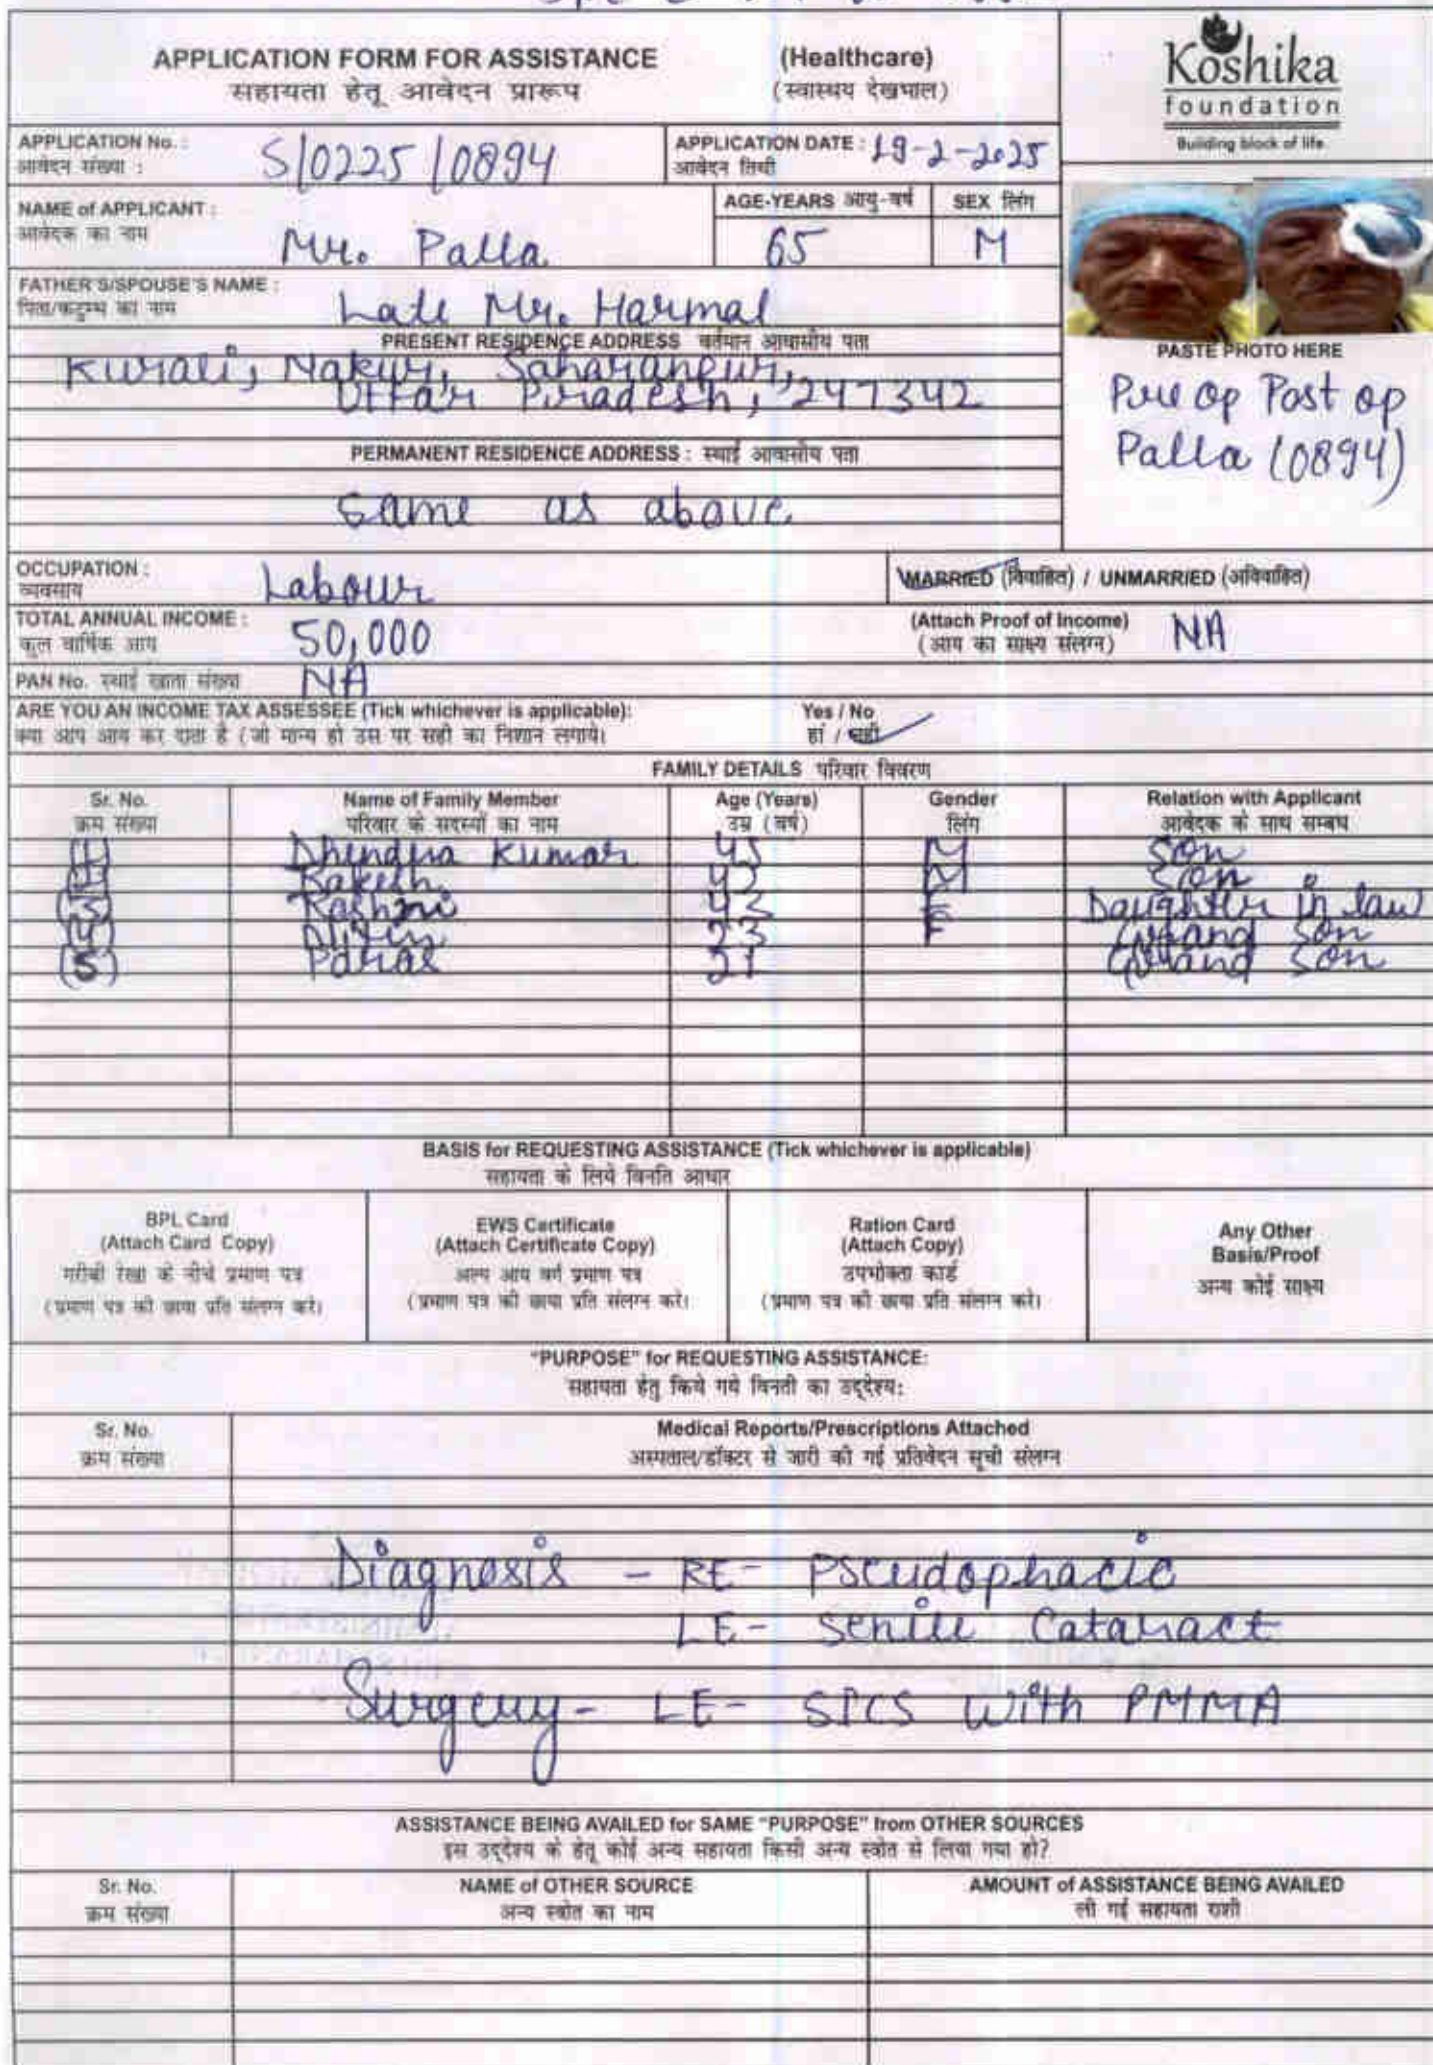 APPLICATION FORM FOR ASSISTANCE (Healthcare)
सहायता हेतू आवेदन प्रारूप (स्वास्थय देखभाल)
Koshika
foundation
Building block of life
APPLICATION No. : S/0225/0894
आवेदन संख्या :
APPLICATION DATE : 19-2-2025
आवेदन तिथी
NAME of APPLICANT : Mr. Palla
आवेदक का नाम
AGE-YEARS आयु-वर्ष 65
SEX लिंग M
FATHER'S/SPOUSE'S NAME : Late Mr. Harmal
पिता/कटुम्ब का नाम
PRESENT RESIDENCE ADDRESS वर्तमान आवासीय पता
Kurali, Nakur, Saharanpur,
Uttar Pradesh, 247342
PERMANENT RESIDENCE ADDRESS : स्थाई आवासीय पता
Same as above
PASTE PHOTO HERE
Pre op Post op
Palla (0894)
OCCUPATION : Labour
व्यवसाय
MARRIED (विवाहित) / UNMARRIED (अविवाहित)
TOTAL ANNUAL INCOME : 50,000
कुल वार्षिक आय
(Attach Proof of Income) NA
(आय का साक्ष्य संलग्न)
PAN No. स्थाई खाता संख्या NA
ARE YOU AN INCOME TAX ASSESSEE (Tick whichever is applicable): Yes / No
क्या आप आय कर दाता है (जो मान्य हो उस पर सही का निशान लगाये। हां / नहीं
FAMILY DETAILS परिवार विवरण
Sr. No. Name of Family Member Age (Years) Gender Relation with Applicant
क्रम संख्या परिवार के सदस्यों का नाम उम्र (वर्ष) लिंग आवेदक के साथ सम्बध
(1) Dhendra Kumar 45 M Son
Rakesh M Son
(3) Rashmi F Daughter in law
(4) 23 F Grand Son
(5) Paras 21 Grand Son
BASIS for REQUESTING ASSISTANCE (Tick whichever is applicable)
सहायता के लिये विनति आधार
BPL Card
(Attach Card Copy)
गरीबी रेखा के नीचे प्रमाण पत्र
(प्रमाण पत्र की छाया प्रति संलग्न करे।
EWS Certificate
(Attach Certificate Copy)
अल्प आय वर्ग प्रमाण पत्र
(प्रमाण पत्र की छाया प्रति संलग्न करे।
Ration Card
(Attach Copy)
उपभोक्ता कार्ड
(प्रमाण पत्र की छाया प्रति संलग्न करे।
Any Other
Basis/Proof
अन्य कोई साक्ष्य
"PURPOSE" for REQUESTING ASSISTANCE:
सहायता हेतु किये गये विनती का उद्देश्य:
Sr. No. Medical Reports/Prescriptions Attached
क्रम संख्या अस्पताल/डॉक्टर से जारी की गई प्रतिवेदन सूची संलग्न
Diagnosis - RE- Pseudophacic
LE- Senile Cataract
Surgery- LE- SICS with PMMA
ASSISTANCE BEING AVAILED for SAME "PURPOSE" from OTHER SOURCES
इस उद्देश्य के हेतू कोई अन्य सहायता किसी अन्य स्त्रोत से लिया गया हो?
Sr. No. NAME of OTHER SOURCE AMOUNT of ASSISTANCE BEING AVAILED
क्रम संख्या अन्य स्त्रोत का नाम ली गई सहायता राशी